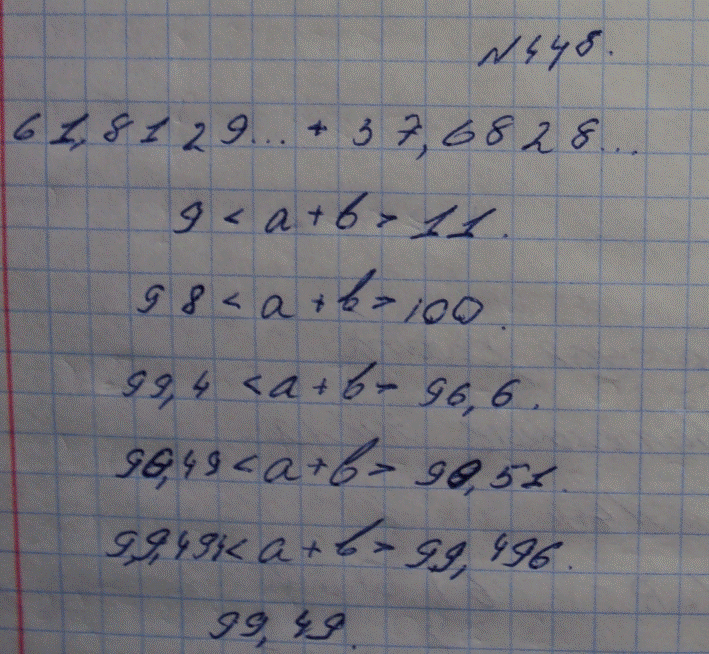 №448.
61,8129... + 37,6828...
9 < a + b > 11.
98 < a + b > 100.
99,4 < a + b > 96,6.
90,49 < a + b > 90,51.
99,494 < a + b > 99,496.
99,49.